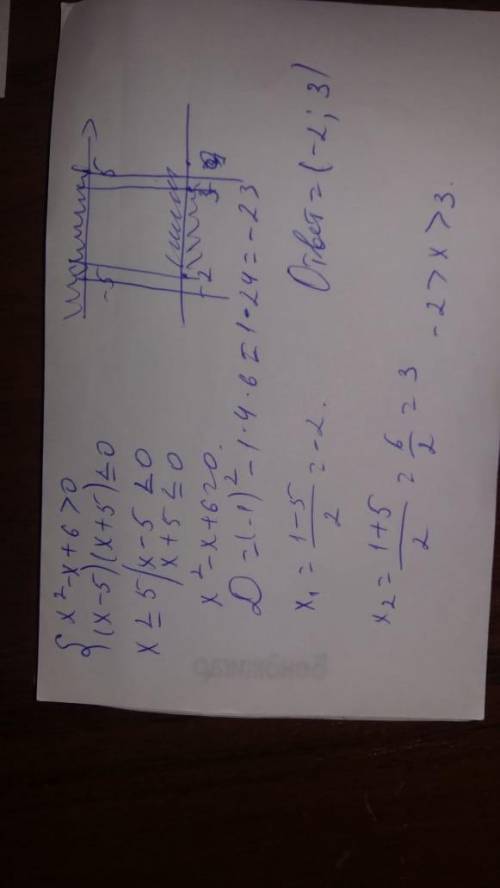 { x²-x+6>0
(x-5)(x+5)≤0
x≤5 / x-5≤0
x+5≤0
x²-x+6=0.
D=(-1)²-1·4·6=1·24=-23
x₁ = (1-5)/2 = -2.
x₂ = (1+5)/2 = 6/2 = 3
-2>x>3.
Ответ = (-2; 3)
-5 5
-2 3